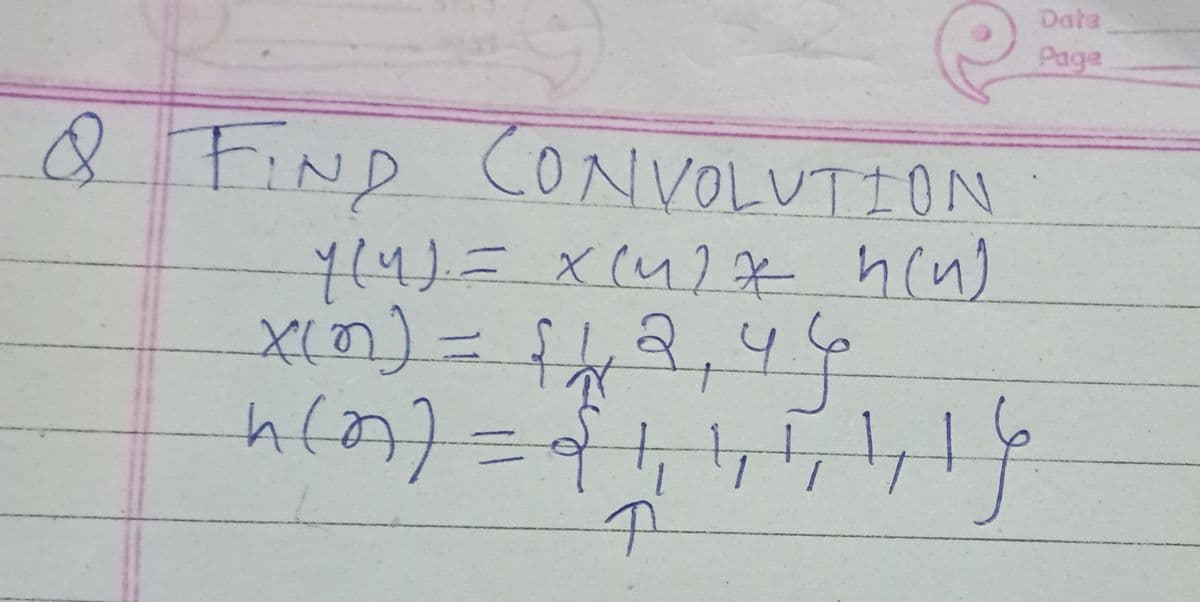 Data
Page
Q FIND CONVOLUTION
y(n) = x(n) * h(n)
x(n) = {1, 2, 4}
↑
h(n) = {1, 1, 1, 1, 1}
↑